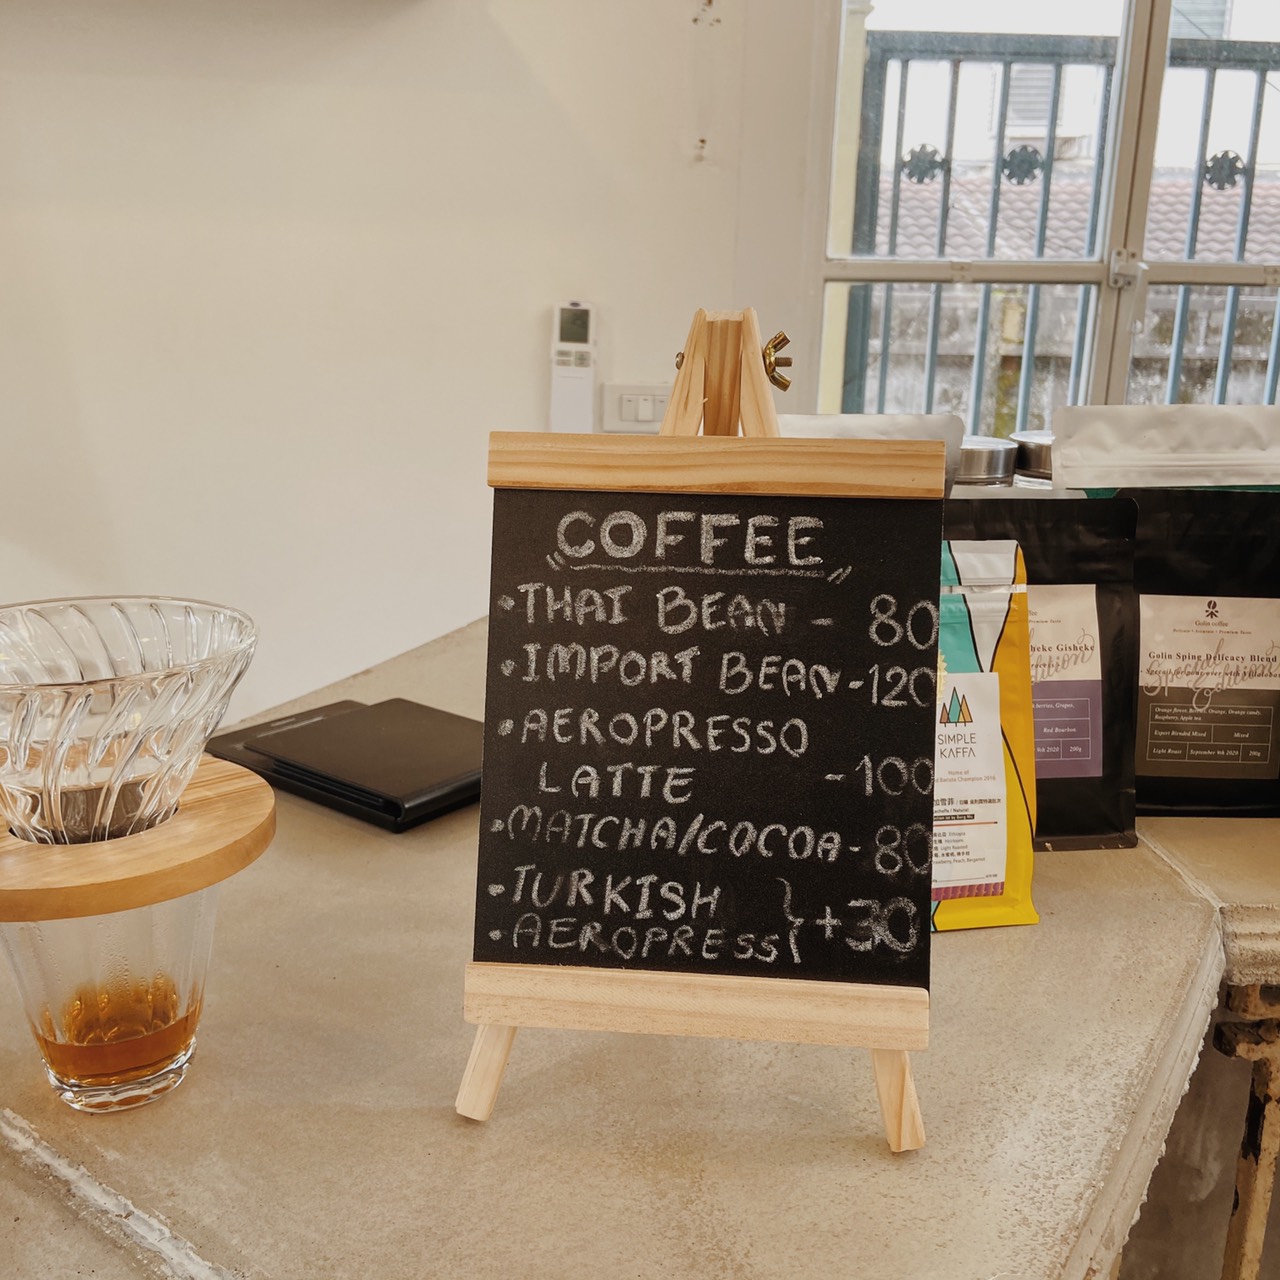 COFFEE
• THAI BEAN - 80
• IMPORT BEAN - 120
• AEROPRESSO
LATTE - 100
• MATCHA/COCOA - 80
• TURKISH
• AEROPRESS } +30
SIMPLE
KAFFA
Home at
Light Roasted
heke Gisheke
Red Bourbon
200g
Golin coffee
Golin Sping Delicacy Blend
Special
Edition
Orange flower, Berries, Orange, Orange candy,
Raspberry, Apple tea
Expert Blended Mixed
Mixed
Light Roast
September 9th 2020
200g